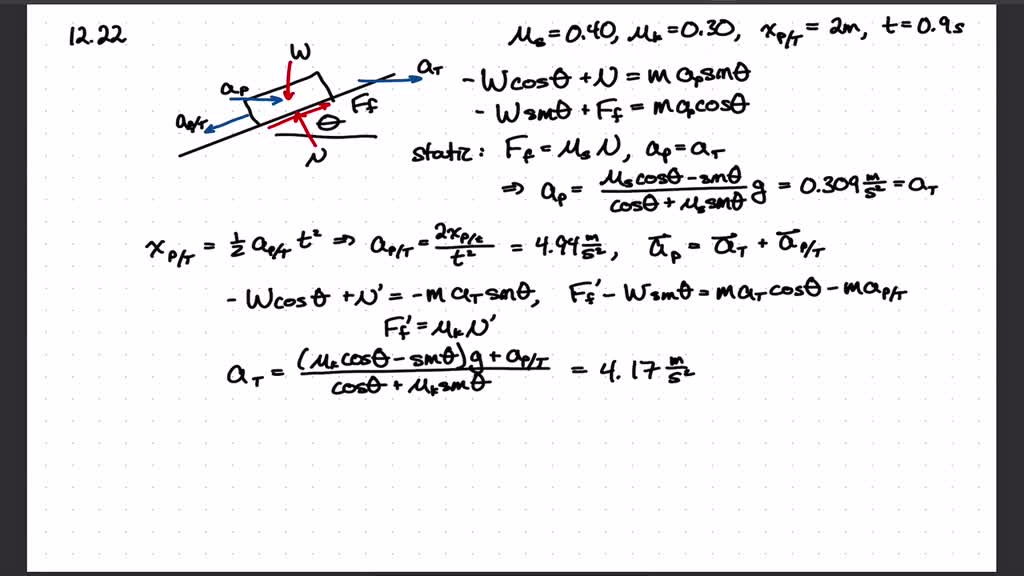 12.22
μs = 0.40, μk = 0.30, x_P/T = 2m, t = 0.9s
W
a_P
a_T
a_P/T
F_f
θ
N
-Wcosθ + N = m a_P sinθ
-W sinθ + F_f = m a_P cosθ
static: F_f = μs N, a_P = a_T
⇒ a_P = (μs cosθ - sinθ)/(cosθ + μs sinθ) g = 0.309 m/s² = a_T
x_P/T = 1/2 a_P/T t² ⇒ a_P/T = 2x_P/t / t² = 4.94 m/s², a⃗_P = a⃗_T + a⃗_P/T
-Wcosθ + N' = -m a_T sinθ, F_f' - W sinθ = m a_T cosθ - m a_P/T
F_f' = μk N'
a_T = ((μk cosθ - sinθ)g + a_P/T)/(cosθ + μk sinθ) = 4.17 m/s²